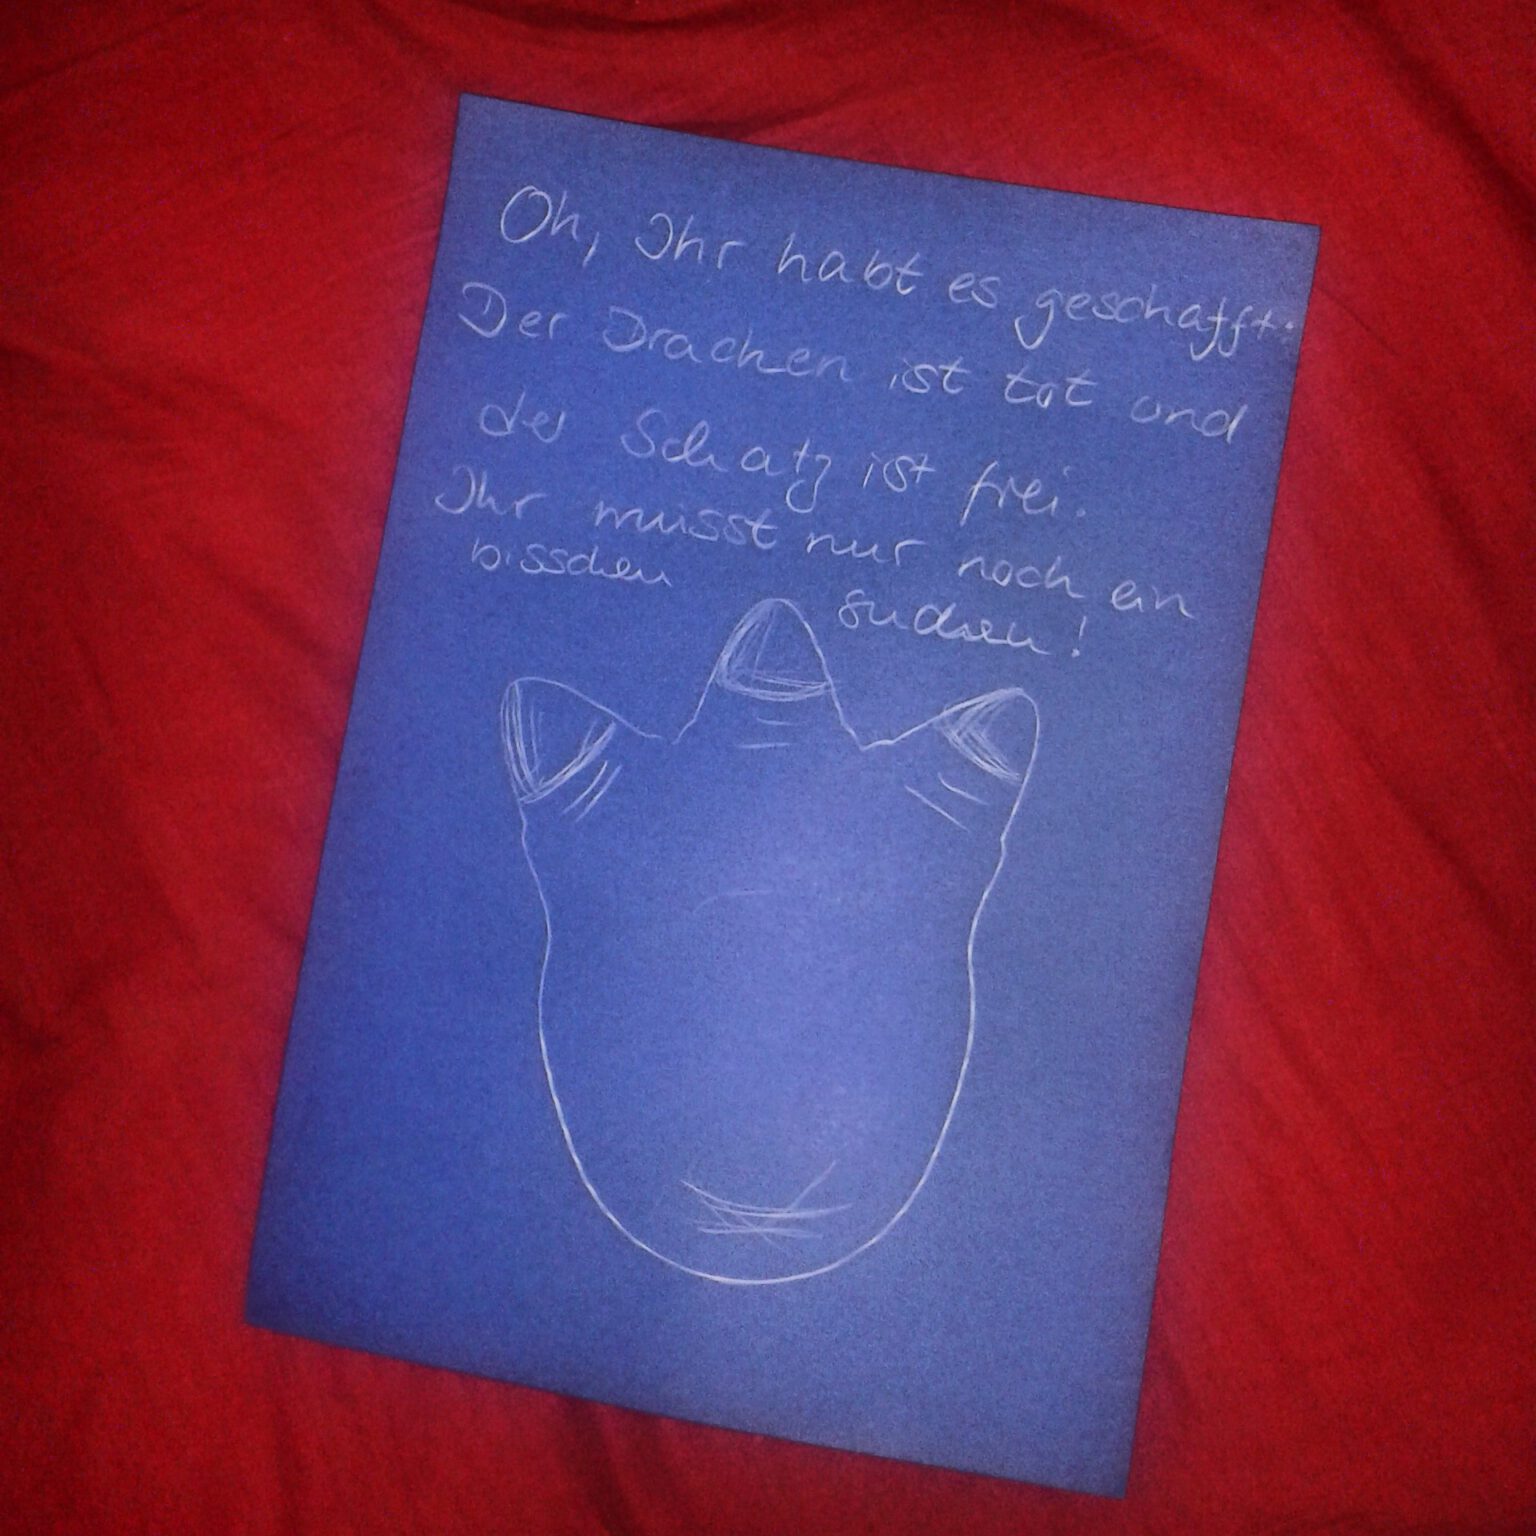 Oh, Ihr habt es geschafft:
Der Drachen ist tot und
der Schatz ist frei.
Ihr müsst nur noch ein
bisschen suchen!